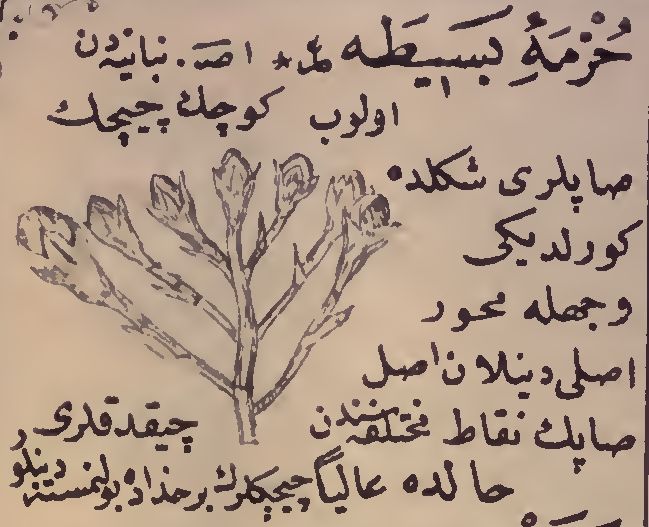 حُزْمَهُٔ بَسِيطَه * اصـ. نباتیه دن
اولوب كوچك چیچك
صاپلری شكلده
كورلدیكی
وجهله محور
اصلی دینلان اصل
صاپك نقاط مختلفه سندن چیقدقلری
حالده عالیاً چیچكلرك بر حذاده بولنمسنه دینلور